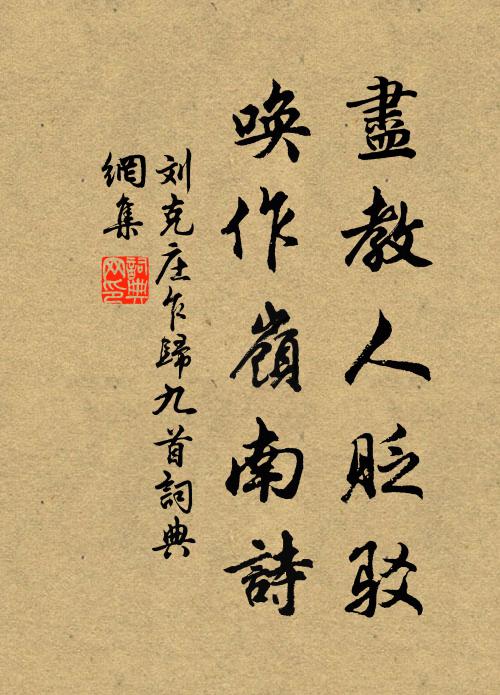 盡教人貶駁
喚作嶺南詩
刘克庄乍歸九首詞典
網集
詞典網印